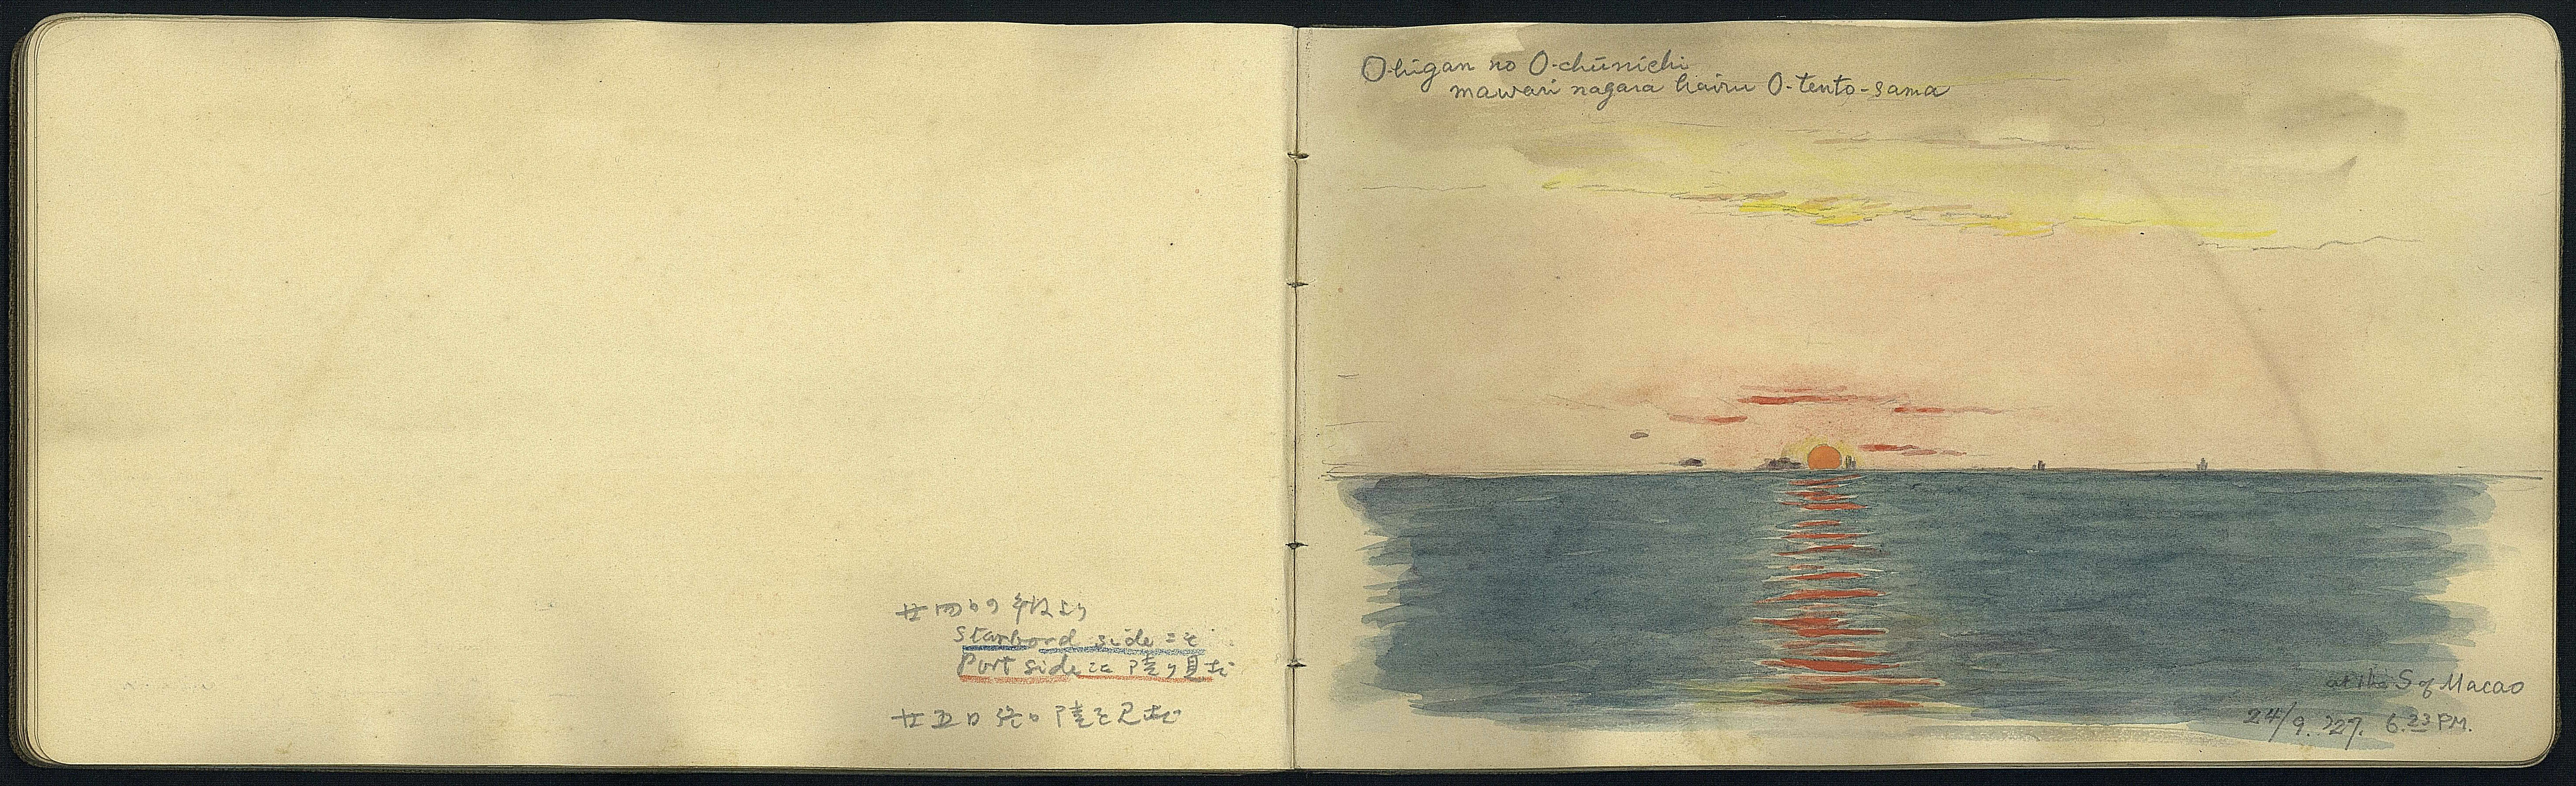 廿四日の夜より
Starbord side にも
Port side にも陸を見ず
廿五日終日陸を見ず
O-higan no O-chūnichi
mawari nagara hairu O-tento-sama
at the S of Macao
24/9. '27. 6.23 P.M.